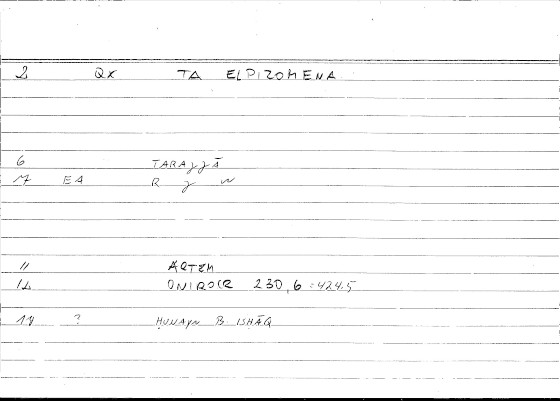 2 QX TA ELPIZOMENA
6 TARAJJĀ
17 EA R J W
11 ARTEM
12 ONIROCR 230,6 = 424.5
14 ? ḤUNAYN B. ISḤĀQ